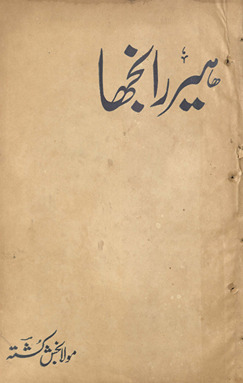 ہیر رانجھا
مولا بخش کشتہ